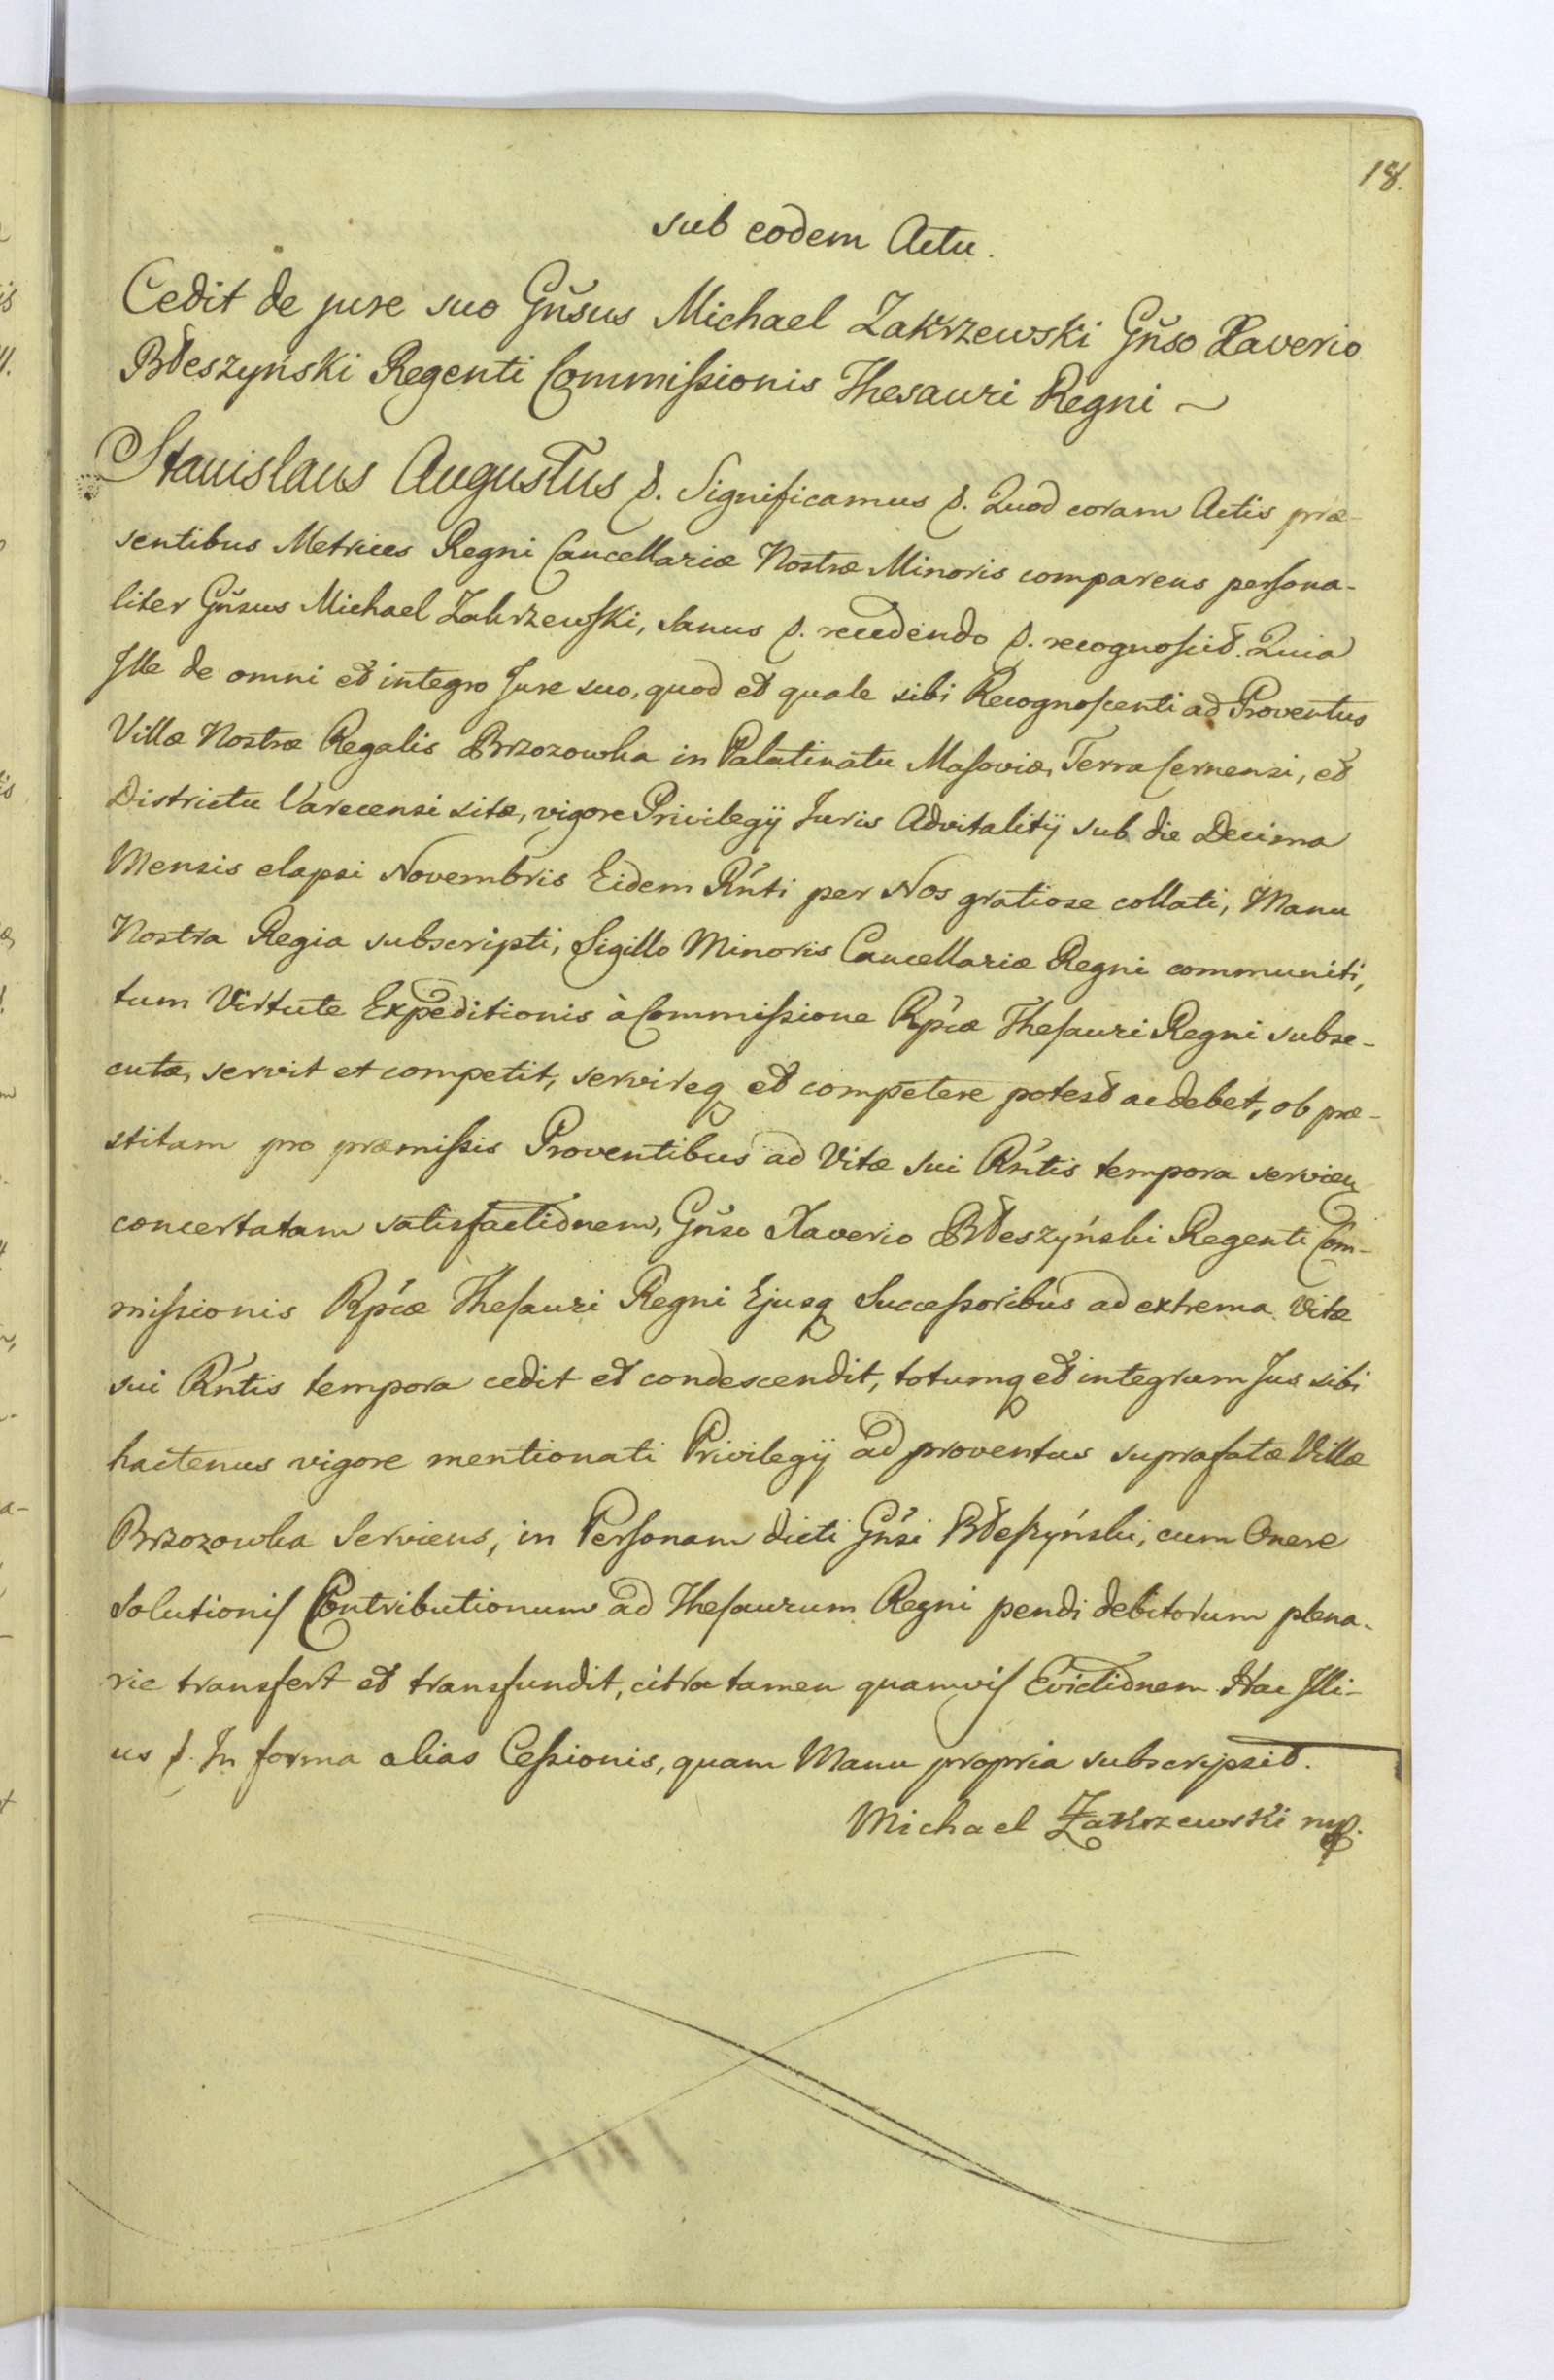 18.
sub eodem Actu.
Cedit de jure suo Gn̄sus Michael Zakrzewski Gn̄so Xaverio
Bdeszyński Regenti Commißionis Thesauri Regni ~
Stanislaus Augustus &. Significamus &. Quod coram Actis præ-
sentibus Metrices Regni Cancellariæ Nostræ Minoris comparens persona-
liter Gn̄sus Michael Zakrzewski, sanus &. recedendo &. recognoscit. Quia
Ille de omni et integro Jure suo, quod et quale sibi Recognoscenti ad Proventus
Villæ Nostræ Regalis Brzozowka in Palatinatu Masoviæ, Terra Cernensi, et
Districtu Varecensi sitæ, vigore Privilegij Juris Advitalitij sub die Decima
Mensis elapsi Novembris Eidem Rn̄ti per Nos gratiose collati, Manu
Nostra Regia subscripti, Sigillo Minoris Cancellariæ Regni communiti,
tum Virtute Expeditionis à Commißione Rp̄cæ Thesauri Regni subse-
cutæ, servit et competit, servireq et competere potest ac debet, ob præ-
stitam pro præmißis Proventibus ad Vitæ sui Rn̄tis tempora servien
concertatam satisfactionem, Gn̄so Xaverio Bdeszyński Regenti Com-
mißionis Rp̄cæ Thesauri Regni Ejusq Succeßoribus ad extrema Vitæ
sui Rn̄tis tempora cedit et condescendit, totumq et integrum Jus sibi
hactenus vigore mentionati Privilegij ad proventus suprafatæ Villæ
Brzozowka Serviens, in Personam dicti Gn̄si Bdeszyński, cum Onere
Solutionis Contributionum ad Thesaurum Regni pendi debitorum plena-
rie transfert et transfundit, citra tamen quamvis Evictionem. Hac Illi-
us &. In forma alias Ceßionis, quam Manu propria subscripsit.
Michael Zakrzewski mp.